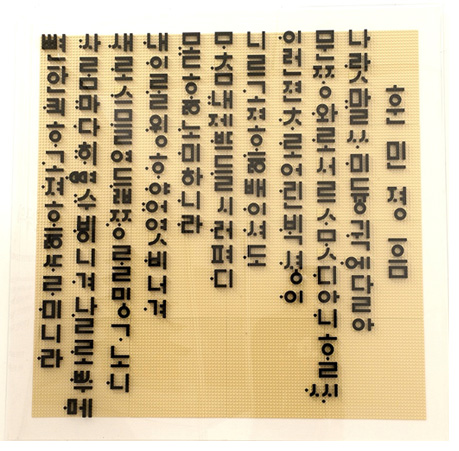 훈민졍음
나랏말ᄊᆞ미듕귁에달아
문ᄍᆞᆼ와로서르ᄉᆞᄆᆞᆺ디아니ᄒᆞᆯᄊᆡ
이런젼ᄎᆞ로어린ᄇᆡᆨ셩이
니르고져ᄒᆞᇙ배이셔도
ᄆᆞᄎᆞᆷ내제ᄠᅳ들시러펴디
몯ᄒᆞᇙ노미하니라
내이ᄅᆞᆯ윙ᄒᆞ야어엿비너겨
새로스믈여듧ᄍᆞᆼᄅᆞᆯᄆᆡᇰᄀᆞ노니
사ᄅᆞᆷ마다ᄒᆡᅇᅧ수ᄫᅵ니겨날로ᄡᅮ메
뼌한킈ᄒᆞ고져ᄒᆞᇙᄯᆞᄅᆞ미니라